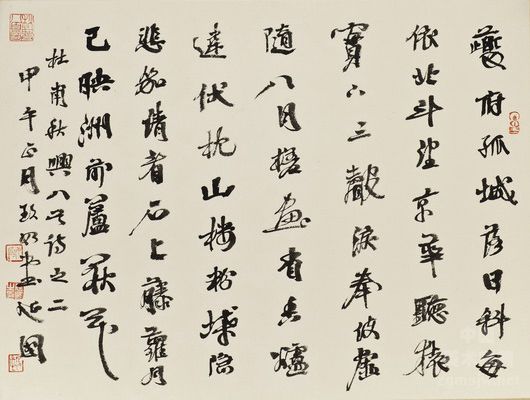 夔府孤城落日斜每
依北斗望京華聽猿
實下三聲淚奉使虛
隨八月槎畫省香爐
違伏枕山樓粉堞隱
悲笳請看石上藤蘿月
已映洲前蘆荻花
杜甫秋興八首詩之二
甲午正月